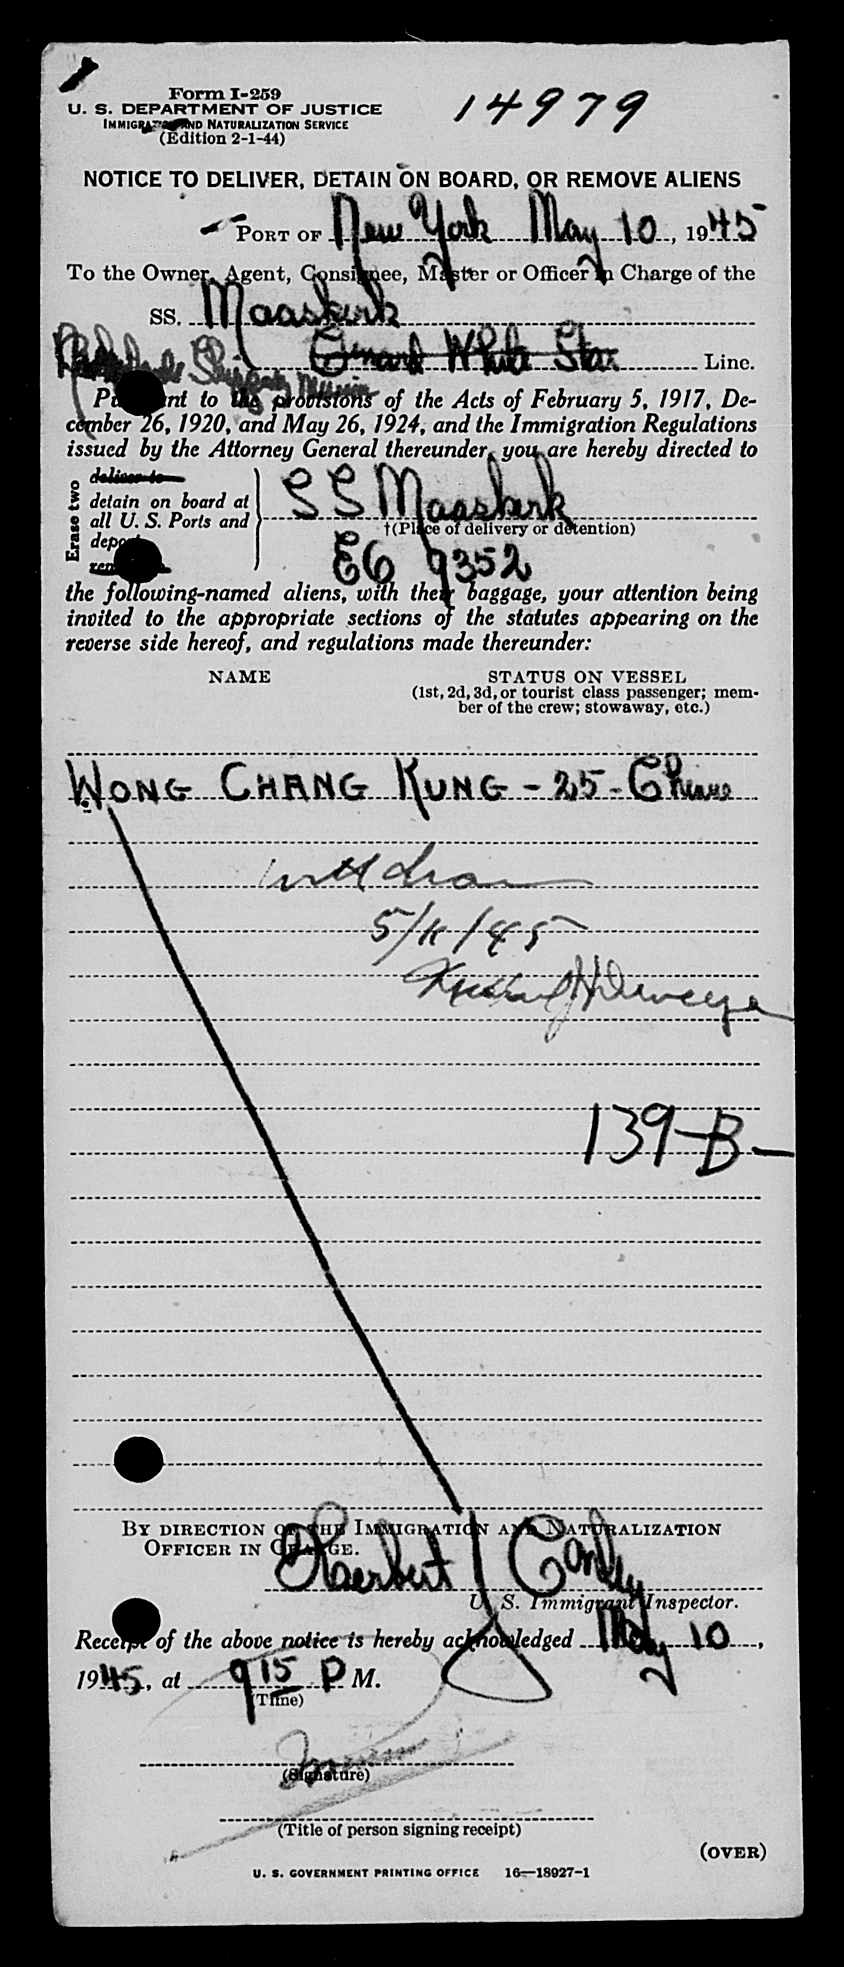 Form I-259
14979
U. S. DEPARTMENT OF JUSTICE
IMMIGRATION AND NATURALIZATION SERVICE
(Edition 2-1-44)
NOTICE TO DELIVER, DETAIN ON BOARD, OR REMOVE ALIENS
PORT OF New York May 10, 1945
To the Owner, Agent, Consignee, Master or Officer in Charge of the
SS. Maaskerk
Cunard White Star Line.
Shipping Mission
Pursuant to the provisions of the Acts of February 5, 1917, De-
cember 26, 1920, and May 26, 1924, and the Immigration Regulations
issued by the Attorney General thereunder, you are hereby directed to
Erase two
deliver to
detain on board at
all U. S. Ports and
deport
SS Maaskerk
†(Place of delivery or detention)
E6 9352
the following-named aliens, with their baggage, your attention being
invited to the appropriate sections of the statutes appearing on the
reverse side hereof, and regulations made thereunder:
NAME STATUS ON VESSEL
(1st, 2d, 3d, or tourist class passenger; mem-
ber of the crew; stowaway, etc.)
WONG CHANG KUNG - 25 - Chinese
withdrawn
5/11/45
139-B-
BY DIRECTION OF THE IMMIGRATION AND NATURALIZATION
OFFICER IN CHARGE.
Herbert J Conley
U. S. Immigrant Inspector.
Receipt of the above notice is hereby acknowledged May 10,
1945, at 9 15 P M.
(Time)
(Signature)
(Title of person signing receipt)
(OVER)
U. S. GOVERNMENT PRINTING OFFICE 16—18927-1